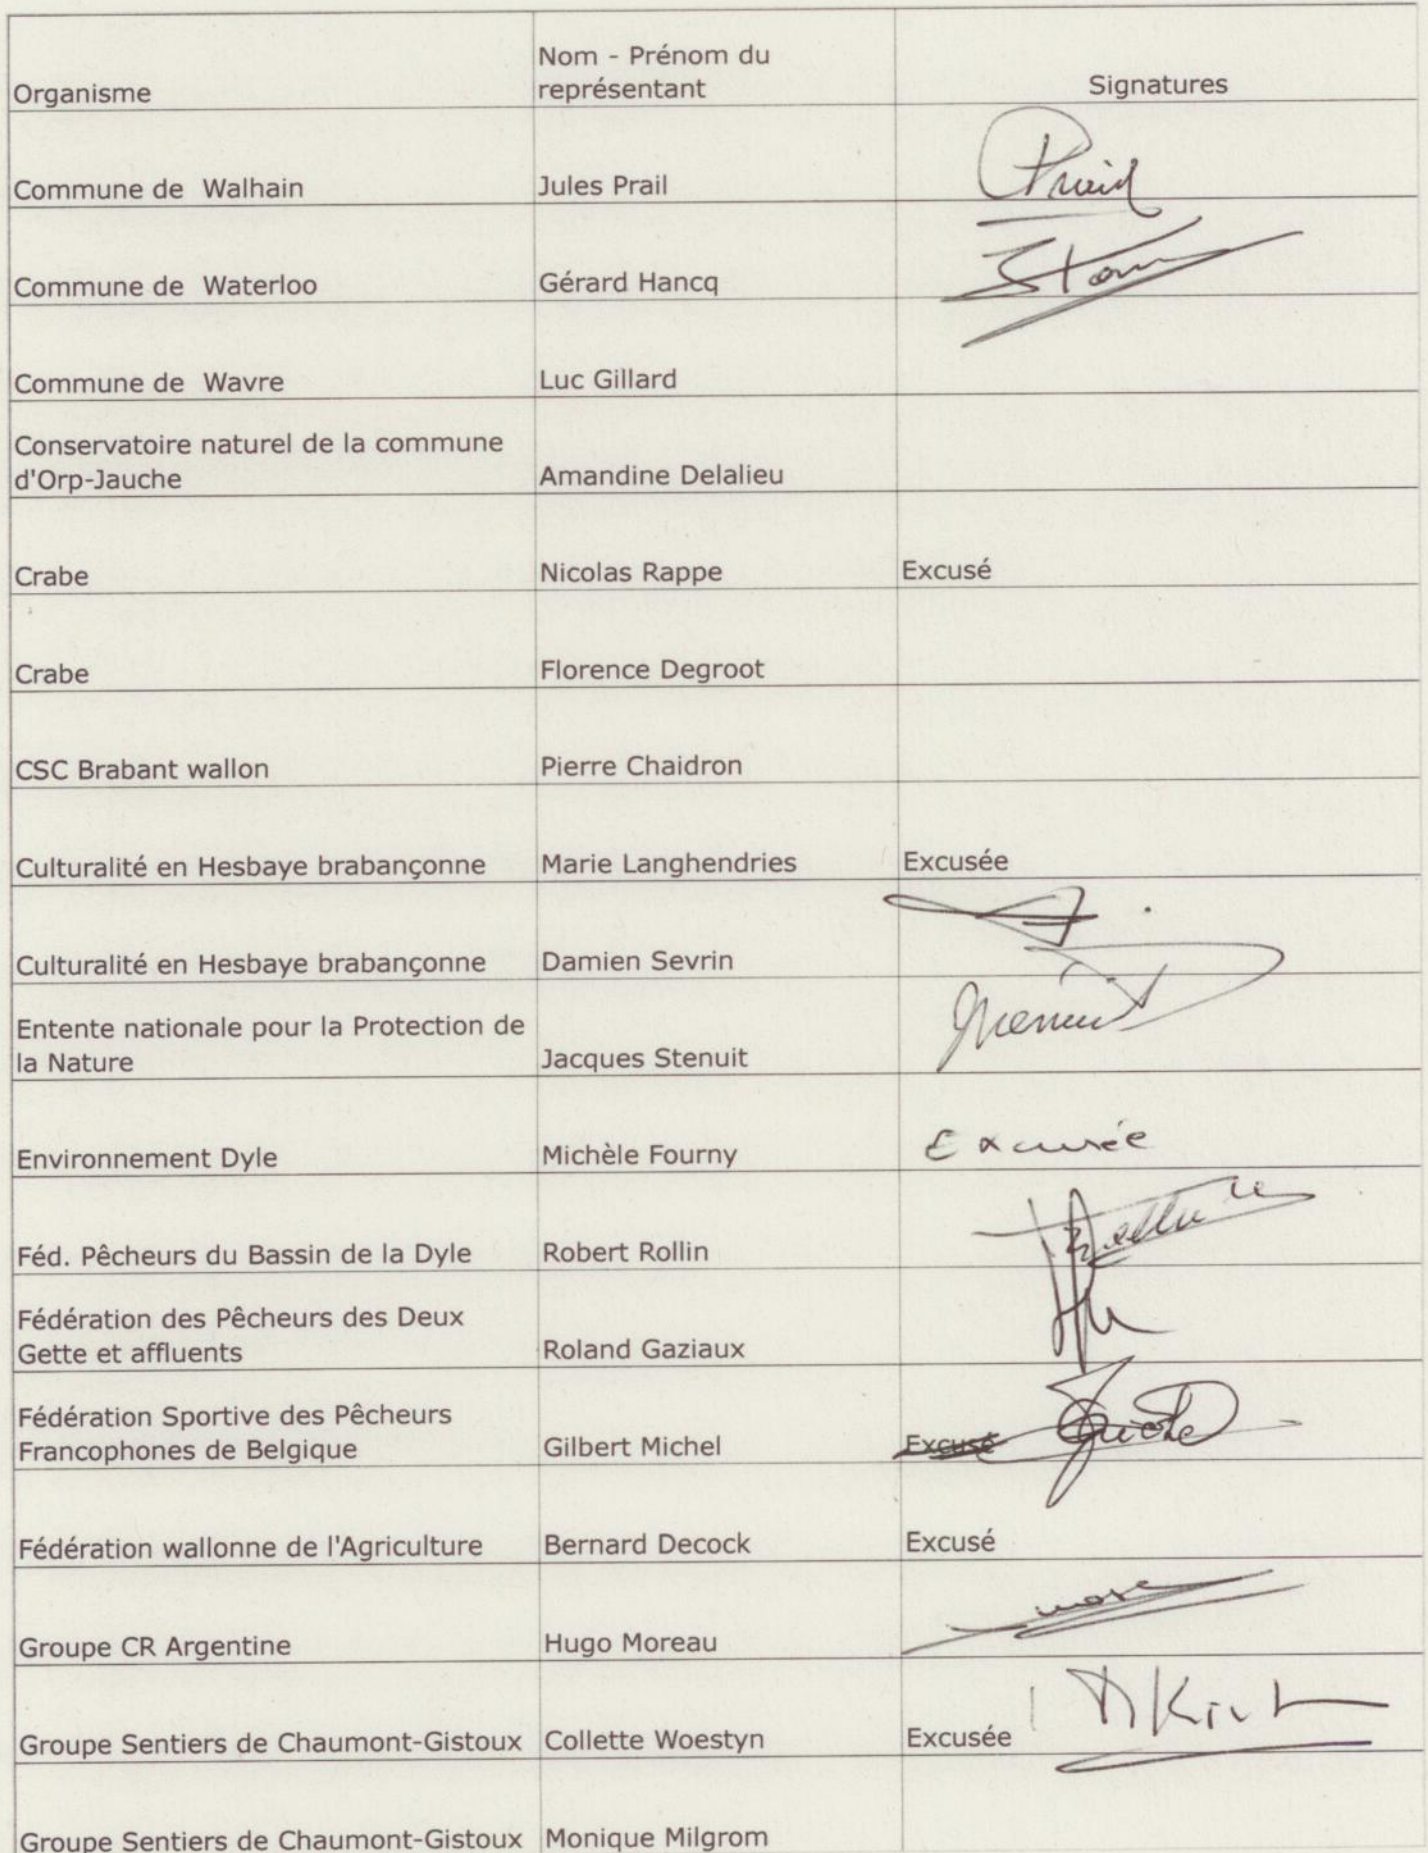 Organisme
Nom - Prénom du
représentant
Signatures
Commune de Walhain
Jules Prail
Commune de Waterloo
Gérard Hancq
Commune de Wavre
Luc Gillard
Conservatoire naturel de la commune
d'Orp-Jauche
Amandine Delalieu
Crabe
Nicolas Rappe
Excusé
Crabe
Florence Degroot
CSC Brabant wallon
Pierre Chaidron
Culturalité en Hesbaye brabançonne
Marie Langhendries
Excusée
Culturalité en Hesbaye brabançonne
Damien Sevrin
Entente nationale pour la Protection de
la Nature
Jacques Stenuit
Environnement Dyle
Michèle Fourny
Excusée
Féd. Pêcheurs du Bassin de la Dyle
Robert Rollin
Fédération des Pêcheurs des Deux
Gette et affluents
Roland Gaziaux
Fédération Sportive des Pêcheurs
Francophones de Belgique
Gilbert Michel
Excusé
Fédération wallonne de l'Agriculture
Bernard Decock
Excusé
Groupe CR Argentine
Hugo Moreau
Groupe Sentiers de Chaumont-Gistoux
Collette Woestyn
Excusée
Groupe Sentiers de Chaumont-Gistoux
Monique Milgrom